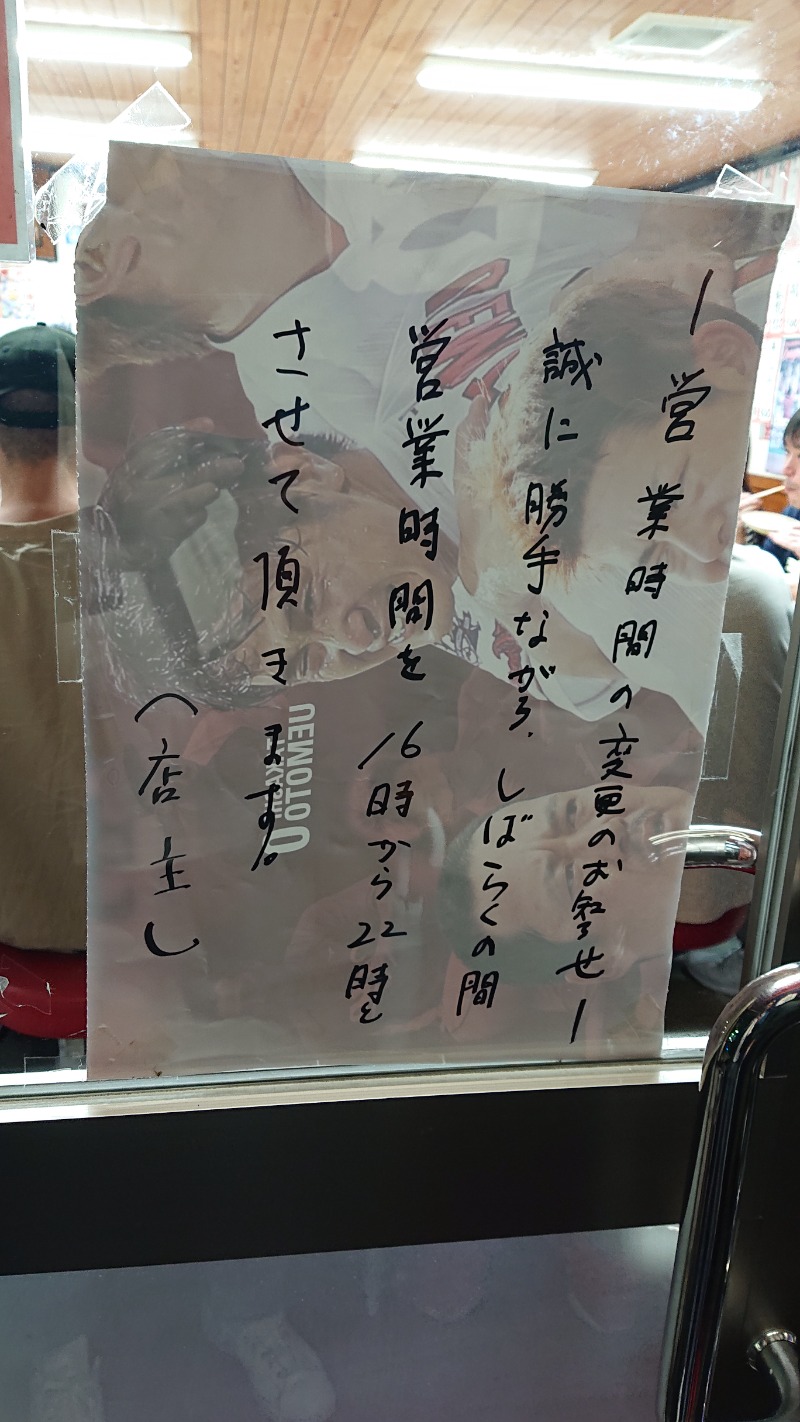 ー営業時間の変更のお知らせー
誠に勝手ながら、しばらくの間
営業時間を16時から22時と
させて頂きます。
〈店主し
UEMOTO